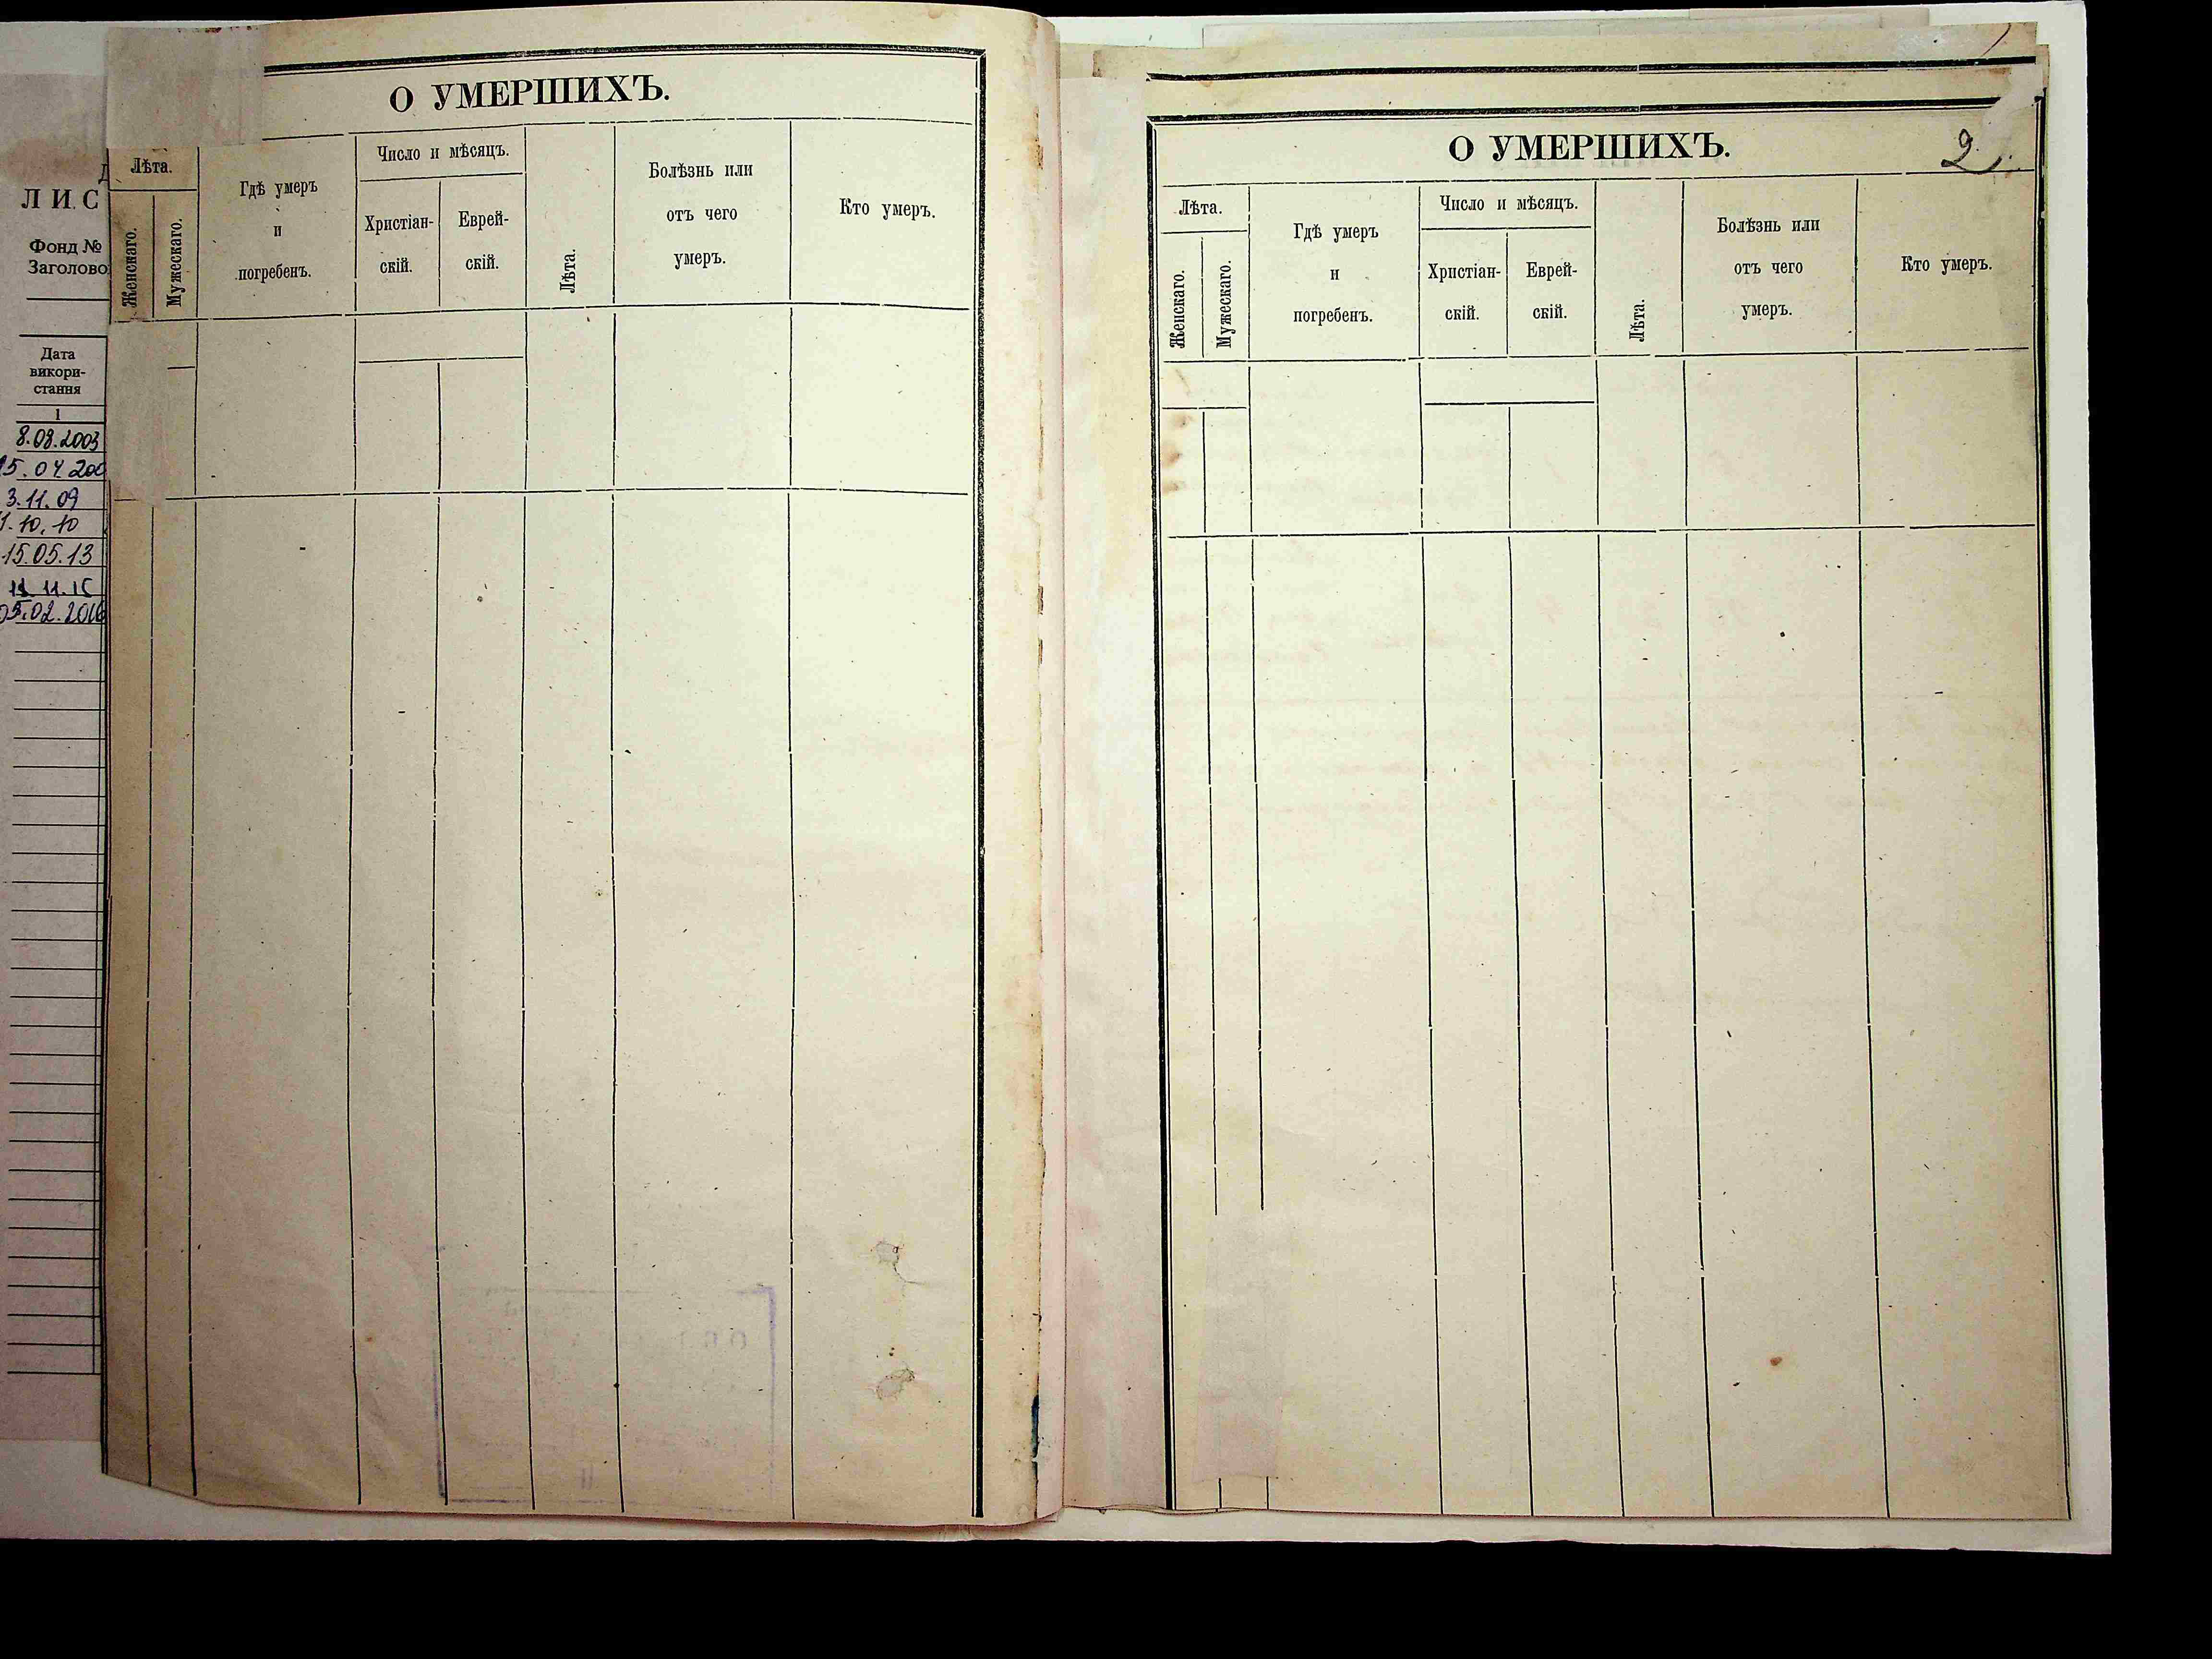 ЛИС
Фонд №
Заголово
Дата
викори-
стання
1
8.08.2003
15.04.200
3.11.09
1.10.10
15.05.13
11.11.15
05.02.2016
О УМЕРШИХЪ.
Лѣта.
Женскаго.
Мужескаго.
Гдѣ умеръ
и
погребенъ.
Число и мѣсяцъ.
Христіан-
скій.
Еврей-
скій.
Лѣта.
Болѣзнь или
отъ чего
умеръ.
Кто умеръ.
О УМЕРШИХЪ.
2
Лѣта.
Женскаго.
Мужескаго.
Гдѣ умеръ
и
погребенъ.
Число и мѣсяцъ.
Христіан-
скій.
Еврей-
скій.
Лѣта.
Болѣзнь или
отъ чего
умеръ.
Кто умеръ.